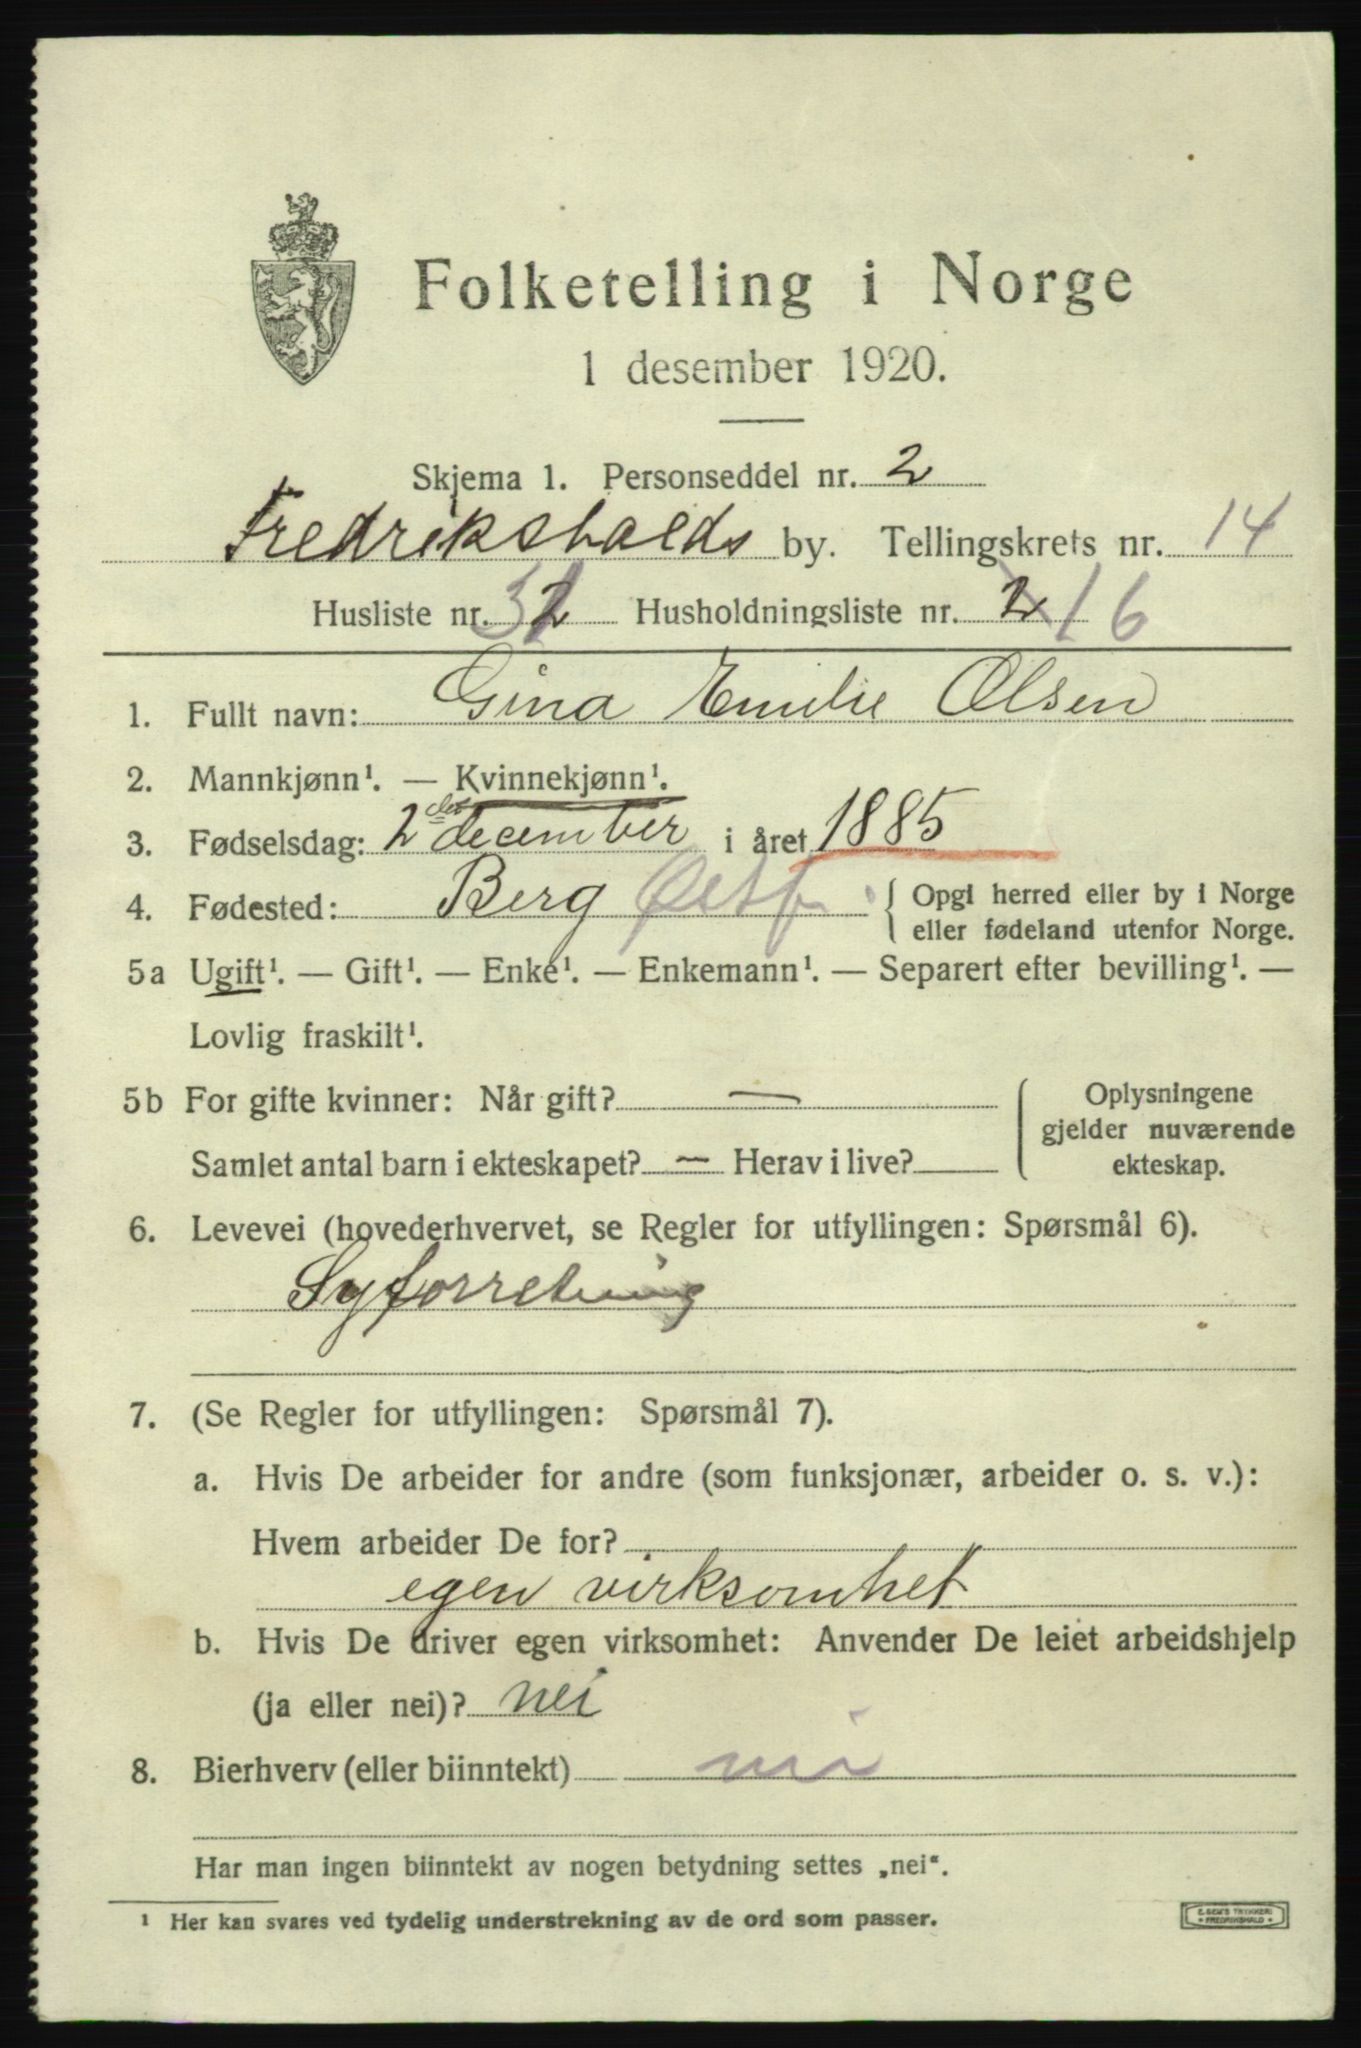 Folketelling i Norge
1 desember 1920.
Skjema 1. Personseddel nr. 2
Fredrikshalds by. Tellingskrets nr. 14
Husliste nr. 2 Husholdningsliste nr. 2 16
1. Fullt navn: Gina Emilie Olsen
2. Mannkjønn¹. — Kvinnekjønn¹.
3. Fødselsdag: 2 december i året 1885
4. Fødested: Berg Østf { Opgi herred eller by i Norge
eller fødeland utenfor Norge.
5a Ugift¹. — Gift¹. — Enke¹. — Enkemann¹. — Separert efter bevilling¹. —
Lovlig fraskilt¹.
5b For gifte kvinner: Når gift? —
Samlet antal barn i ekteskapet? — Herav i live?
Oplysningene
gjelder nuværende
ekteskap.
6. Levevei (hovederhvervet, se Regler for utfyllingen: Spørsmål 6).
Syforretning
7. (Se Regler for utfyllingen: Spørsmål 7).
a. Hvis De arbeider for andre (som funksjonær, arbeider o. s. v.):
Hvem arbeider De for?
egen virksomhet
b. Hvis De driver egen virksomhet: Anvender De leiet arbeidshjelp
(ja eller nei)? nei
8. Bierhverv (eller biinntekt) nei
Har man ingen biinntekt av nogen betydning settes „nei“.
¹ Her kan svares ved tydelig understrekning av de ord som passer.
E. SEM'S TRYKKERI
FREDRIKSHALD